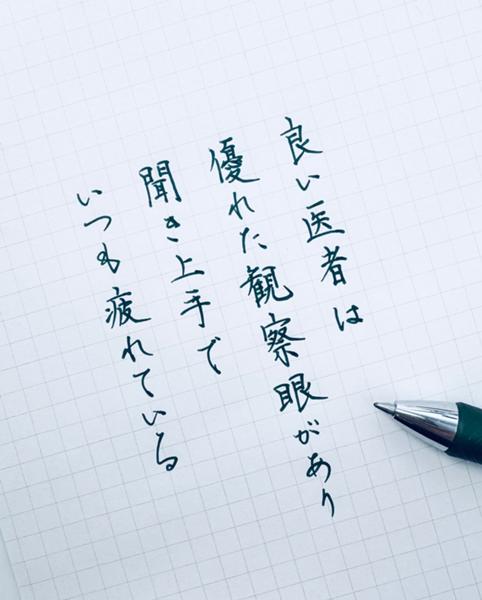 良い医者は
優れた観察眼があり
聞き上手で
いつも疲れている